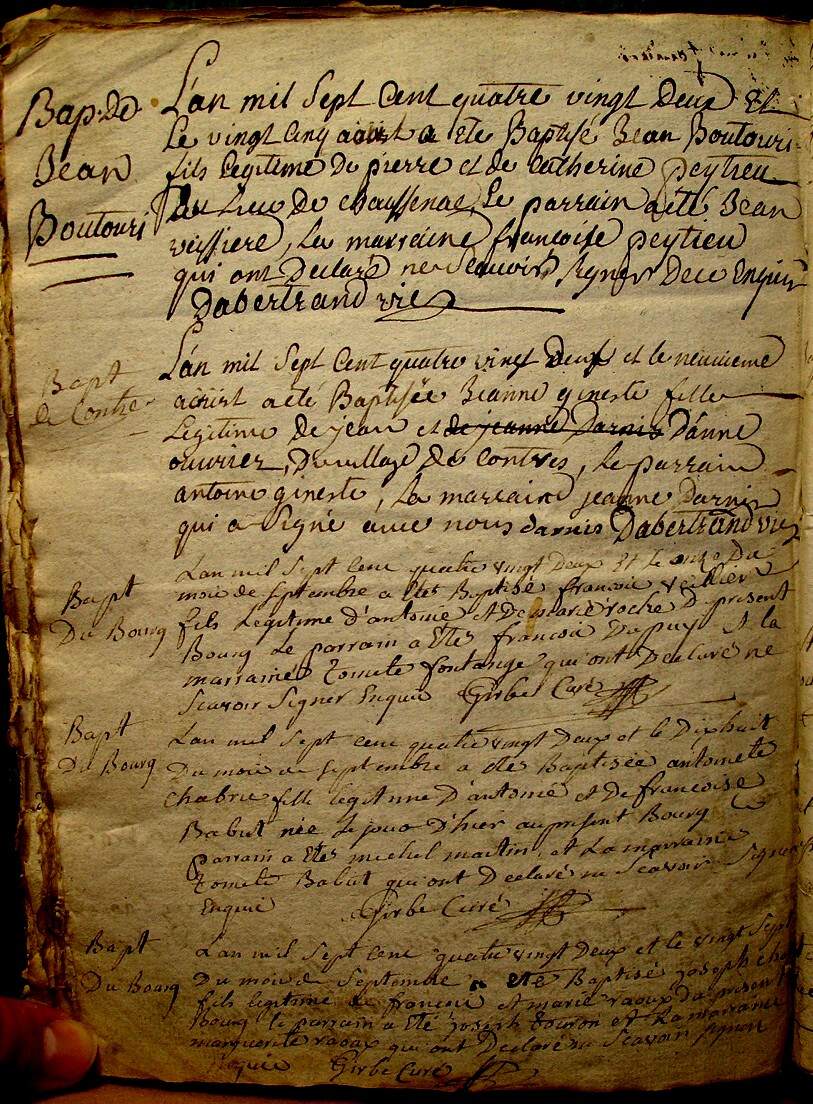 Bap. de
Jean
Boutouri
L'an mil sept cent quatre vingt deux et
le vingt cinq aoust a ete Baptisé Jean Boutouri
fils legitime de pierre et de Catherine peytieu
du lieu de chaussenac, le parrain a été Jean
veissiere, la marraine francoise peytieu
qui ont declaré ne scavoir signer de ce Enquis
Dabertrand vic
Bapt
de Contre
L'an mil sept cent quatre vingt deux et le neuvieme
aoust a eté Baptisée Jeanne gineste fille
legitime de jean et de jeanne Darnis d'anne
ouvrier, du village de contres, le parrain
antoine gineste, la marraine jeanne Darnis
qui a signé avec nous darnis Dabertrand vic
Bapt
Du Bourg
Lan mil sept cent quatre vingt deux et le onze du
moie de septembre a etes Baptisé francoie veillier
fils legitime d'antoine et de marie roche du present
Bourg le parrain a etes francoie Dupuy et la
marraine tomete fontange qui ont declaré ne
scavoir signer Enquis Girbe Curé
Bapt
Du Bourg
Lan mil sept cent quatre vingt deux et le dixhuit
du moie de septembre a ete Baptisée antoinete
chabrie fille legitime d'antoine et de francoise
Babut née le jour d'hier au present Bourg
parrain a etes michel martin, et la marraine
tomete Babut qui ont declaré ne scavoir signer
Enquis Girbe Curé
Bapt
Du Bourg
Lan mil sept cent quatre vingt deux et le vingt sept
du moie de septembre a eté Baptisé joseph
fils legitime de francoie et marie raoux du present
Bourg le parrain a eté joseph touron et la marraine
marguerite raoux qui ont declaré ne scavoir signer
Enquis Girbe Curé